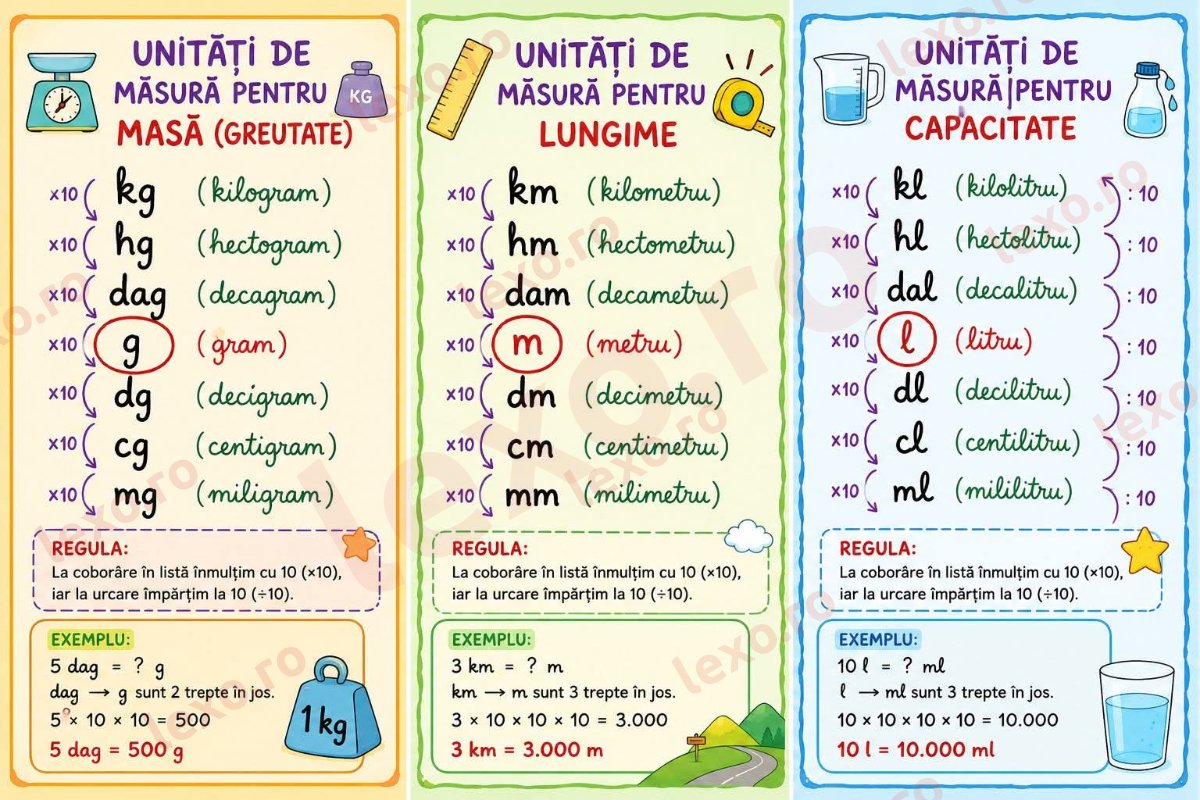 UNITĂȚI DE
MĂSURĂ PENTRU
MASĂ (GREUTATE)
KG
x10 kg (kilogram)
x10 hg (hectogram)
x10 dag (decagram)
x10 g (gram)
x10 dg (decigram)
x10 cg (centigram)
x10 mg (miligram)
REGULA:
La coborâre în listă înmulțim cu 10 (×10),
iar la urcare împărțim la 10 (÷10).
EXEMPLU:
5 dag = ? g
dag → g sunt 2 trepte în jos.
5 × 10 × 10 = 500
5 dag = 500 g
1 kg
UNITĂȚI DE
MĂSURĂ PENTRU
LUNGIME
x10 km (kilometru)
x10 hm (hectometru)
x10 dam (decametru)
x10 m (metru)
x10 dm (decimetru)
x10 cm (centimetru)
x10 mm (milimetru)
REGULA:
La coborâre în listă înmulțim cu 10 (×10),
iar la urcare împărțim la 10 (÷10).
EXEMPLU:
3 km = ? m
km → m sunt 3 trepte în jos.
3 × 10 × 10 × 10 = 3.000
3 km = 3.000 m
UNITĂȚI DE
MĂSURĂ PENTRU
CAPACITATE
x10 kl (kilolitru) : 10
x10 hl (hectolitru) : 10
x10 dal (decalitru) : 10
x10 l (litru) : 10
x10 dl (decilitru) : 10
x10 cl (centilitru) : 10
x10 ml (mililitru) : 10
REGULA:
La coborâre în listă înmulțim cu 10 (×10),
iar la urcare împărțim la 10 (÷10).
EXEMPLU:
10 l = ? ml
l → ml sunt 3 trepte în jos.
10 × 10 × 10 × 10 = 10.000
10 l = 10.000 ml
lexo.ro